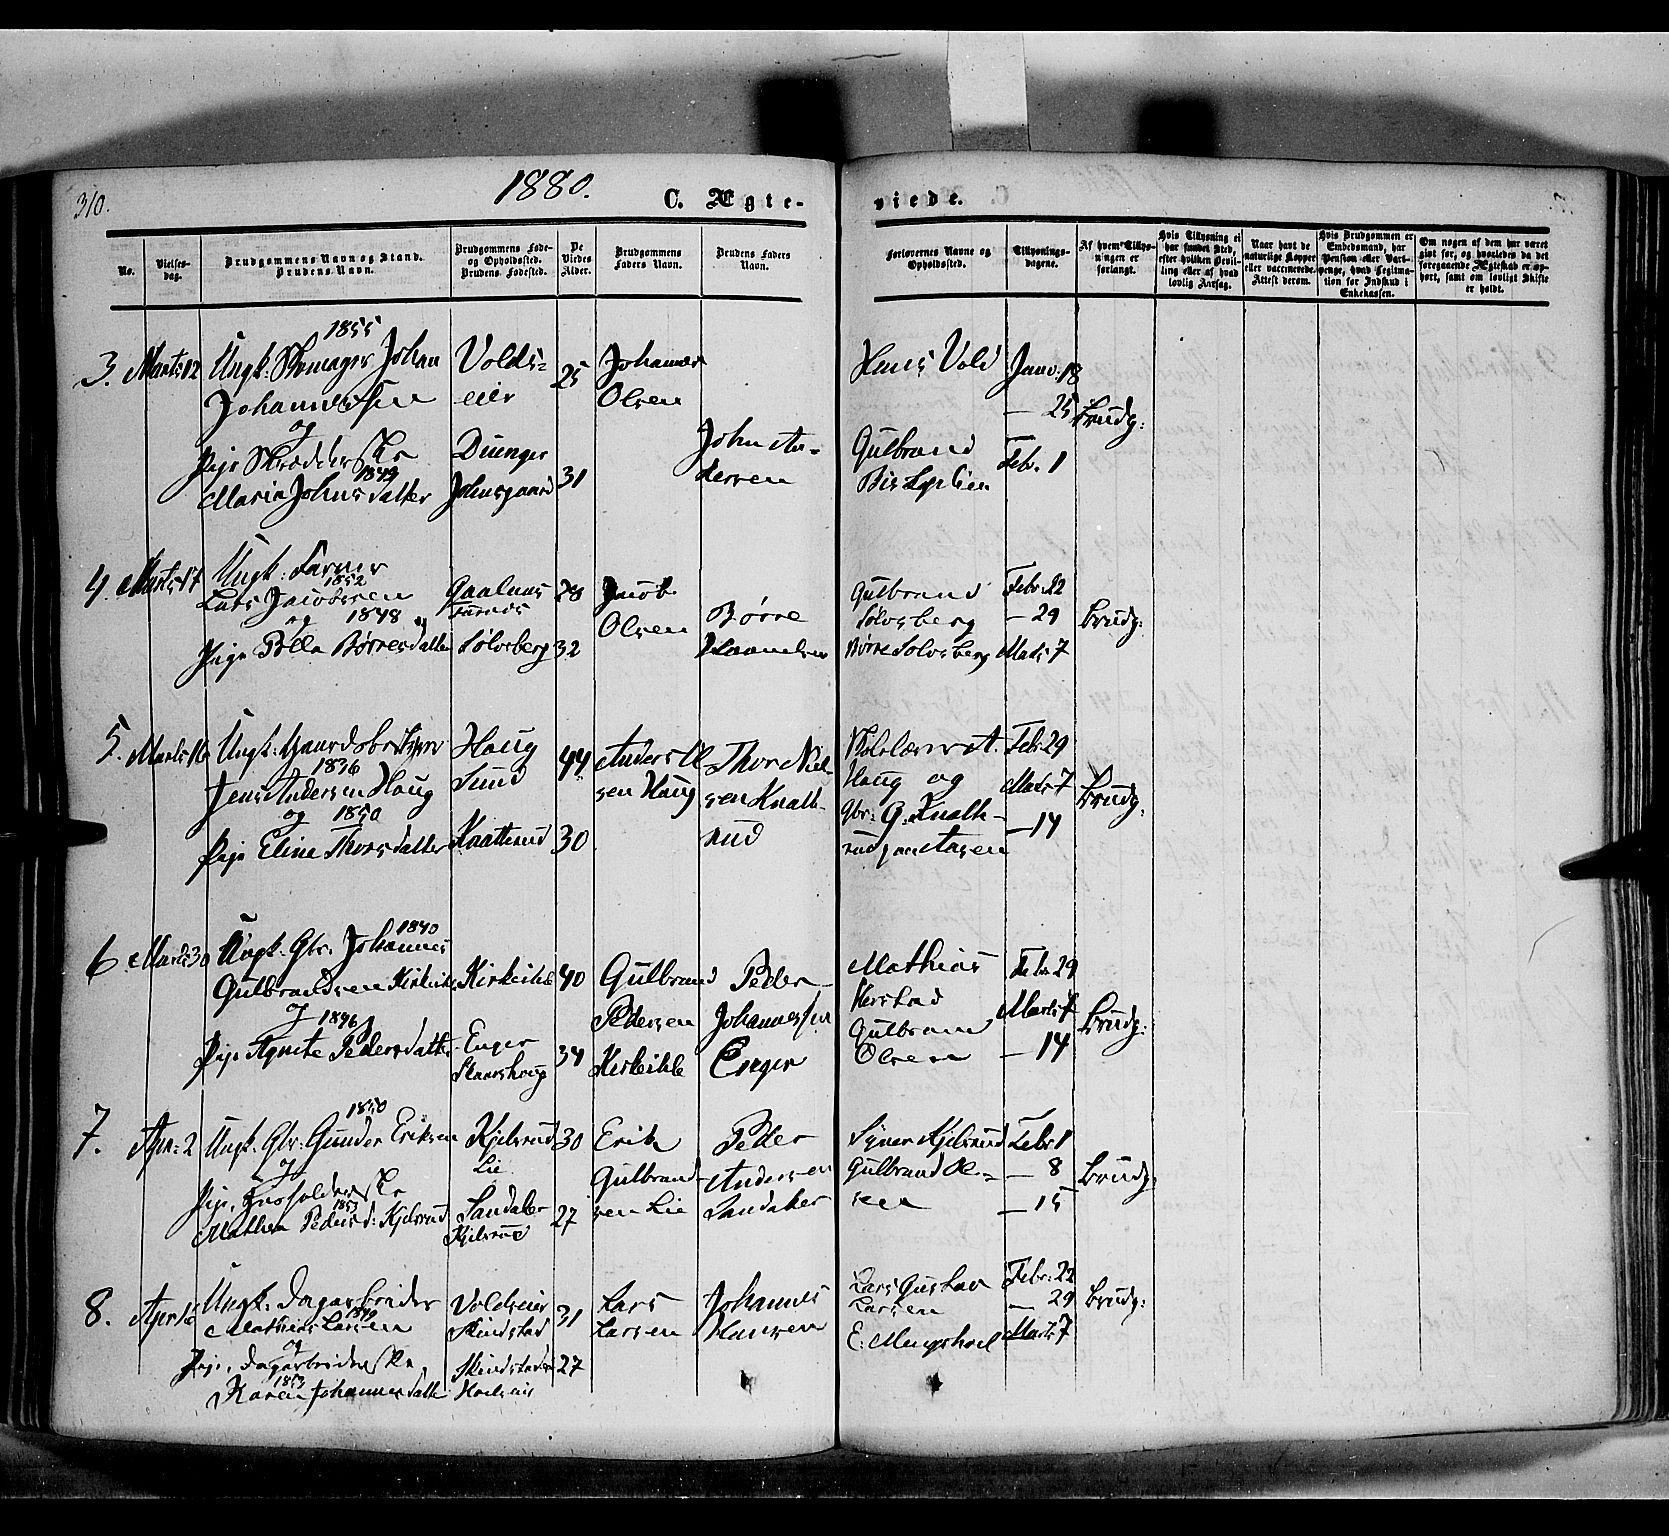 310.
1880.
C. Ægte-
viede.
No.
Vielses-
dag.
Brudgommens Navn og Stand.
Brudens Navn.
Brudgommens Føde-
og Opholdssted.
Brudens Fødested.
De
Viedes
Alder.
Brudgommens
Faders Navn.
Brudens Faders
Navn.
Forlovernes Navne og
Opholdssted.
Tillysnings-
dagene.
Af hvem Tillys-
ningen er
forlangt.
Hvis Tillysning ei
har fundet Sted,
efter hvilken Bevil-
ling eller af hvad
lovlig Aarsag.
Naar havt de
naturlige Kopper
eller vaccinerede.
Attest derom.
Hvis Brudgommen er
Embedsmand, har
Pension eller Vart-
penge, hvad Legitima-
tion for Indskud i
Enkekassen.
Om nogen af dem har været
givt før, og hvorledes da det
foregaaende Ægteskab er op-
hørt, samt om lovligt Skifte
er holdt.
3. Marts 12
1855
Ungk. Skomager Johan
Johannessen
og
Pige
1849
Maria Johnsdatter
Volds-
eier
Johnsgaard
25
31
Johannes
Olsen
John An-
dersen
Hans Vold
Gulbrand
Janv. 18
— 25
Febr. 1
Brudg:
4. Marts 17
Ungk:
1852
Lars Jacobssen
og 1848
Pige Børresdatter
Sølvsberg
28
32
Jacob
Olsen
Børre
Gulbrand
Sølvsberg
Børre Solvsberg
Febr. 22
— 29
Marts 7
Brudg:
5. Marts 16
Ungk: Gaardbruger
1836
Jens Andersen Haug
og 1850
Pige Eline Thorsdatter
Haug
Sund
Knatterud
44
30
Anders Ol
sen Haug
Thor Niel-
sen Knatte-
rud
Kirkesanger A.
Haug og
Gbr. G. Knatte-
Febr. 29
Marts 7
— 14
Brudg:
6. Marts 30
1840
Ungk. Gbr. Johannes
Gulbrandsen Kirkeikle
og 1846
Pige Agnete Pedersdatter
Kirkeikle
Enger
40
34
Gulbrand
Pedersen
Kirkeikle
Peder
Johannessen
Enger
Mathias
Gulbrand
Olsen
Febr. 29
Marts 7
— 14
Brudg:
7. Apr. 2
1850
Ungk. Gbr. Gunder Eriksen
og
Pige,
1853
Mathea Peders d: Kjelsrud
Kjelsrud
Lie
Sandaker
Kjelsrud
30
27
Erik
Gulbrand-
sen Lie
Peder
Andersen
Sandaker
Syver Kjelsrud
Gulbrand Ol-
sen
Febr. 1
— 8
— 15
Brudg:
8. Apr. 16
Ungk. Dagarbeider
1849
Mathias Larsen
og
Pige, Dagarbeiderske,
1853
Karen Johannesdatter
Voldseier
31
27
Lars
Larsen
Johannes
Hansen
Lars Gustav
Larsen
E. Mengshoel
Febr. 22
— 29
Marts 7
Brudg: